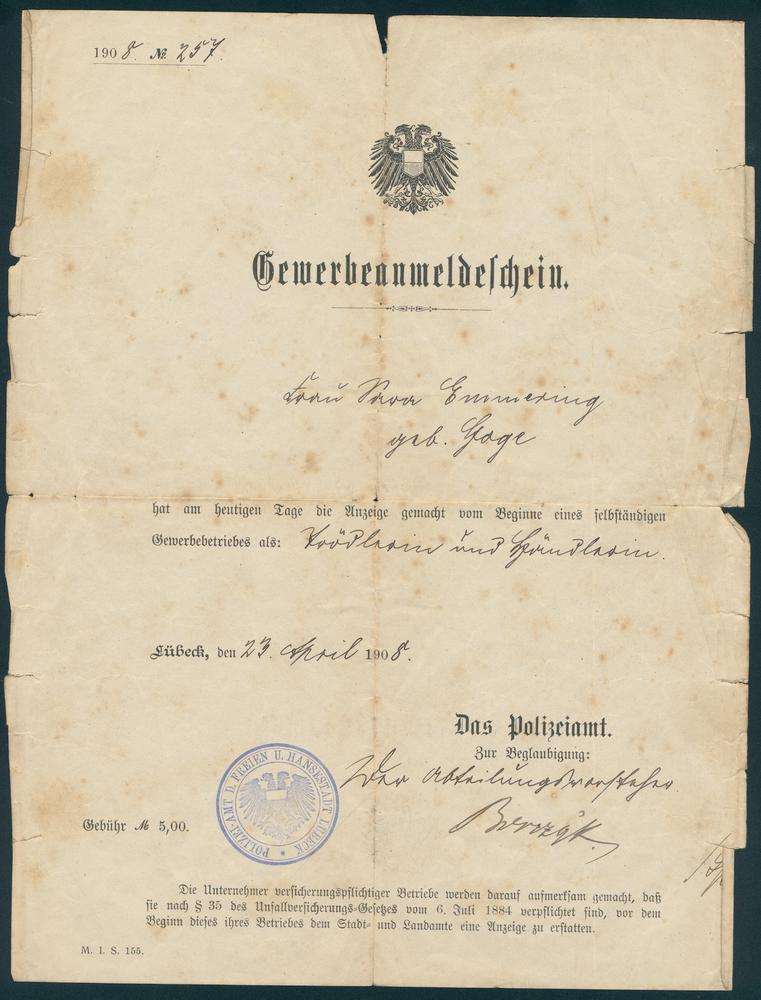 1908. № 257.
Gewerbeanmeldeschein.
Frau Sara Emmering
geb.
hat am heutigen Tage die Anzeige gemacht vom Beginne eines selbständigen
Gewerbebetriebes als: Trödlerin und Händlerin.
Lübeck, den 23. April 1908.
Das Polizeiamt.
Zur Beglaubigung:
Der Abteilungsvorsteher.
POLIZEI-AMT D. FREIEN U. HANSESTADT LÜBECK
Gebühr ℳ 5,00.
Die Unternehmer versicherungspflichtiger Betriebe werden darauf aufmerksam gemacht, daß
sie nach § 35 des Unfallversicherungs-Gesetzes vom 6. Juli 1884 verpflichtet sind, vor dem
Beginn dieses ihres Betriebes dem Stadt- und Landamte eine Anzeige zu erstatten.
M. I. S. 155.